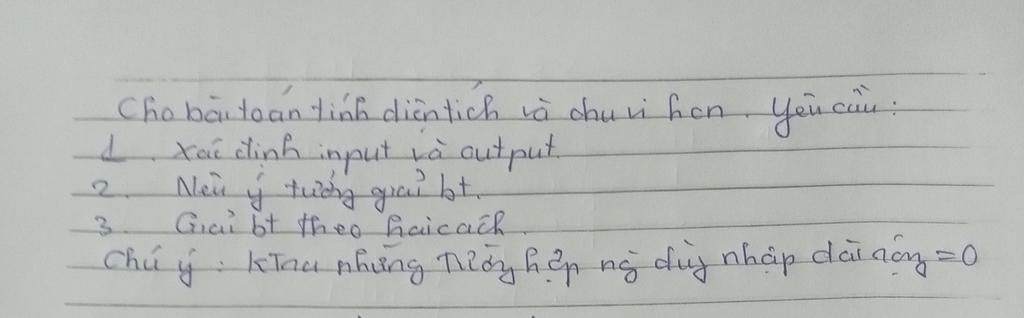 Cho bài toán tính diện tích và chu vi hcn. Yêu cầu:
1. Xác định input và output.
2. Nêu ý tưởng giải bt.
3. Giải bt theo hai cách.
Chú ý: KTra những trường hợp ng dùng nhập dài rộng = 0